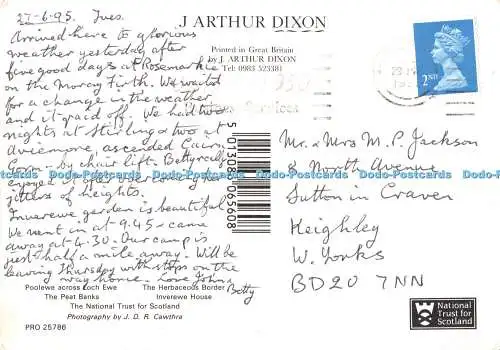 27-6-95. Tues.
Arrived here to glorious
weather yesterday after
five good days at Rosemarkie
on the Moray Firth. We waited
for a change in the weather
and it paid off. We had two
nights at Stirling & two at
Aviemore, ascended Cairn
Gorm - by chair lift. Betty really
enjoyed it, got over
jitters of heights.
Inverewe garden is beautiful
We went in at 9.45 & came
away at 4.30. Our camp is
just half a mile away. Will be
leaving Thursday with stops on the
way home. Love John &
Betty
J ARTHUR DIXON
Printed in Great Britain
by J. ARTHUR DIXON
Tel: 0983 523381
Services
2ND
5 013083 065608
Mr. & Mrs M. P. Jackson
8 North Avenue
Sutton in Craven
Keighley
W. Yorks
BD20 7NN
Dodo-Postcards Dodo-Postcards Dodo-Postcards Dodo-Postcards Dodo-Postcards
Poolewe across Loch Ewe The Herbaceous Border
The Peat Banks Inverewe House
The National Trust for Scotland
Photography by J. D. R. Cawthra
PRO 25786
National
Trust for
Scotland